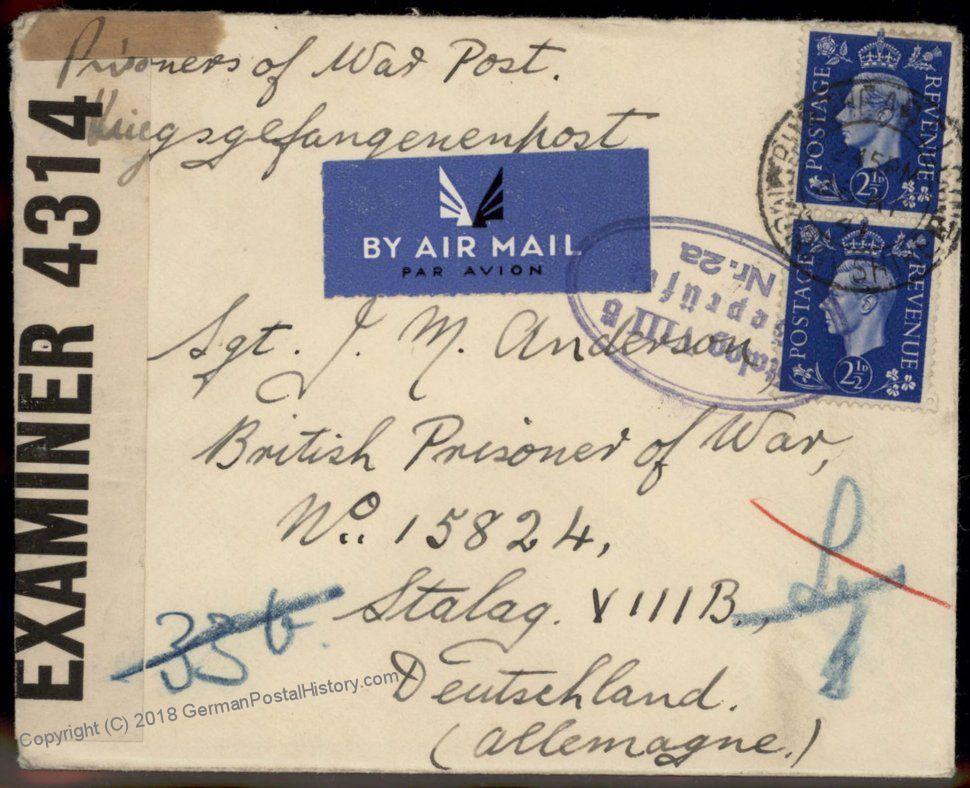 Prisoners of War Post.
Kriegsgefangenenpost
EXAMINER 4314
BY AIR MAIL
PAR AVION
POSTAGE REVENUE
2½D
POSTAGE REVENUE
2½D
Stalag VIII B
Geprüft
Nr. 2a
Sgt. J. M. Anderson,
British Prisoner of War,
No. 15824,
Stalag. VIIIB.,
Deutschland.
(Allemagne.)
Copyright (C) 2018 GermanPostalHistory.com